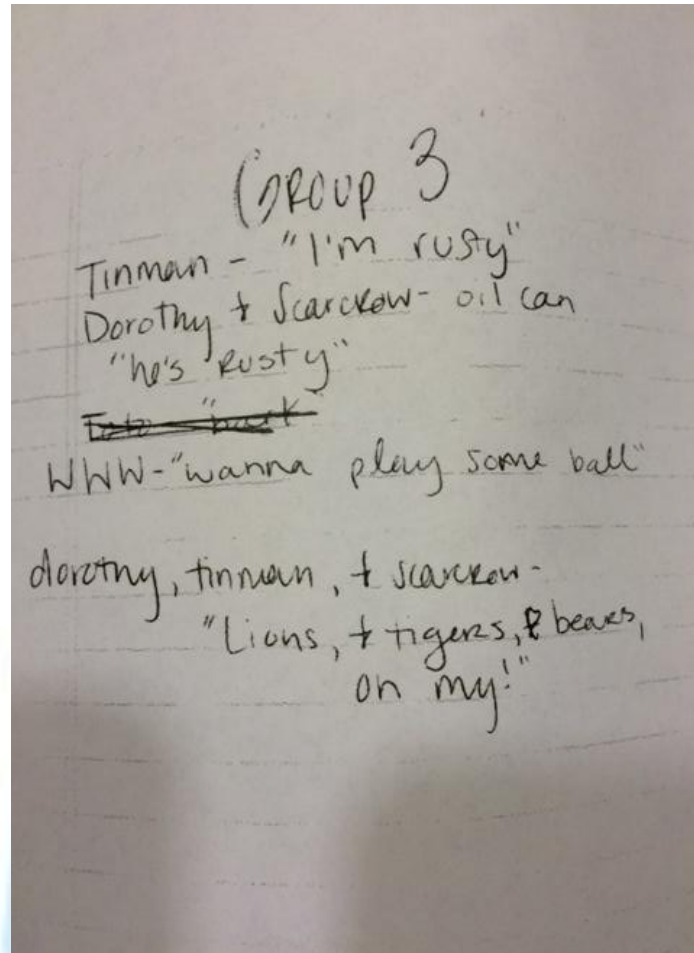 GROUP 3
Tinman - "I'm rusty"
Dorothy + Scarcrow- oil can
"he's Rusty"
WWW-"wanna play some ball"
dorothy, tinman, + scarcrow-
"Lions, + tigers, & bears,
oh my!"